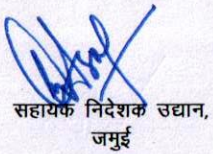 सहायक निदेशक उद्यान,
जमुई